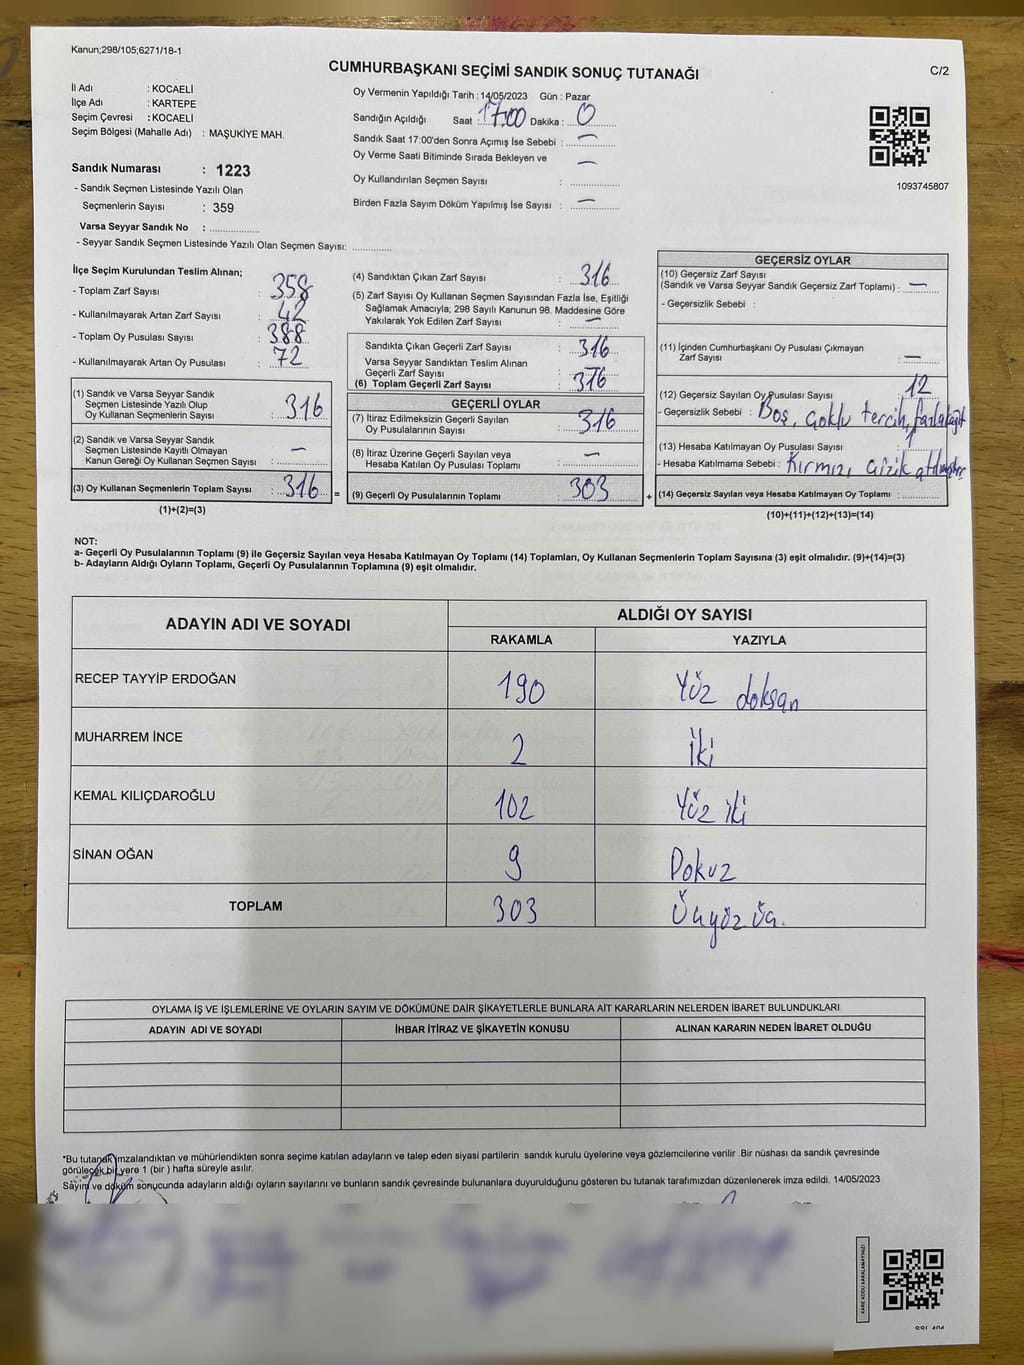 Kanun;298/105;6271/18-1
CUMHURBAŞKANI SEÇİMİ SANDIK SONUÇ TUTANAĞI
C/2
İl Adı : KOCAELİ
İlçe Adı : KARTEPE
Seçim Çevresi : KOCAELİ
Seçim Bölgesi (Mahalle Adı) : MAŞUKİYE MAH.
Sandık Numarası : 1223
- Sandık Seçmen Listesinde Yazılı Olan
Seçmenlerin Sayısı : 359
Varsa Seyyar Sandık No :
- Seyyar Sandık Seçmen Listesinde Yazılı Olan Seçmen Sayısı:
Oy Vermenin Yapıldığı Tarih : 14/05/2023 Gün : Pazar
Sandığın Açıldığı Saat : 17:00 Dakika : 0
Sandık Saat 17:00'den Sonra Açımış İse Sebebi : —
Oy Verme Saati Bitiminde Sırada Bekleyen ve —
Oy Kullandırılan Seçmen Sayısı :
Birden Fazla Sayım Döküm Yapılmış İse Sayısı : —
1093745807
İlçe Seçim Kurulundan Teslim Alınan;
- Toplam Zarf Sayısı : 358
- Kullanılmayarak Artan Zarf Sayısı : 42
- Toplam Oy Pusulası Sayısı : 388
- Kullanılmayarak Artan Oy Pusulası : 72
(1) Sandık ve Varsa Seyyar Sandık
Seçmen Listesinde Yazılı Olup
Oy Kullanan Seçmenlerin Sayısı : 316
(2) Sandık ve Varsa Seyyar Sandık
Seçmen Listesinde Kayıtlı Olmayan
Kanun Gereği Oy Kullanan Seçmen Sayısı : —
(3) Oy Kullanan Seçmenlerin Toplam Sayısı : 316 =
(1)+(2)=(3)
(4) Sandıktan Çıkan Zarf Sayısı : 316
(5) Zarf Sayısı Oy Kullanan Seçmen Sayısından Fazla İse, Eşitliği
Sağlamak Amacıyla; 298 Sayılı Kanunun 98. Maddesine Göre
Yakılarak Yok Edilen Zarf Sayısı : —
Sandıkta Çıkan Geçerli Zarf Sayısı : 316
Varsa Seyyar Sandıktan Teslim Alınan
Geçerli Zarf Sayısı :
(6) Toplam Geçerli Zarf Sayısı : 316
GEÇERLİ OYLAR
(7) İtiraz Edilmeksizin Geçerli Sayılan
Oy Pusulalarının Sayısı : 316
(8) İtiraz Üzerine Geçerli Sayılan veya
Hesaba Katılan Oy Pusulası Toplamı : —
(9) Geçerli Oy Pusulalarının Toplamı : 303 +
GEÇERSİZ OYLAR
(10) Geçersiz Zarf Sayısı
(Sandık ve Varsa Seyyar Sandık Geçersiz Zarf Toplamı) : —
- Geçersizlik Sebebi :
(11) İçinden Cumhurbaşkanı Oy Pusulası Çıkmayan
Zarf Sayısı : —
(12) Geçersiz Sayılan Oy Pusulası Sayısı : 12
- Geçersizlik Sebebi : Boş, çoklu tercih, fazla kağıt
(13) Hesaba Katılmayan Oy Pusulası Sayısı : 1
- Hesaba Katılmama Sebebi : Kırmızı çizik atılmış
(14) Geçersiz Sayılan veya Hesaba Katılmayan Oy Toplamı :
(10)+(11)+(12)+(13)=(14)
NOT:
a- Geçerli Oy Pusulalarının Toplamı (9) ile Geçersiz Sayılan veya Hesaba Katılmayan Oy Toplamı (14) Toplamları, Oy Kullanan Seçmenlerin Toplam Sayısına (3) eşit olmalıdır. (9)+(14)=(3)
b- Adayların Aldığı Oyların Toplamı, Geçerli Oy Pusulalarının Toplamına (9) eşit olmalıdır.
ADAYIN ADI VE SOYADI
ALDIĞI OY SAYISI
RAKAMLA YAZIYLA
RECEP TAYYİP ERDOĞAN 190 Yüz doksan
MUHARREM İNCE 2 İki
KEMAL KILIÇDAROĞLU 102 Yüz iki
SİNAN OĞAN 9 Dokuz
TOPLAM 303 Üçyüz üç.
OYLAMA İŞ VE İŞLEMLERİNE VE OYLARIN SAYIM VE DÖKÜMÜNE DAİR ŞİKAYETLERLE BUNLARA AİT KARARLARIN NELERDEN İBARET BULUNDUKLARI
ADAYIN ADI VE SOYADI İHBAR İTİRAZ VE ŞİKAYETİN KONUSU ALINAN KARARIN NEDEN İBARET OLDUĞU
*Bu tutanak imzalandıktan ve mühürlendikten sonra seçime katılan adayların ve talep eden siyasi partilerin sandık kurulu üyelerine veya gözlemcilerine verilir .Bir nüshası da sandık çevresinde
görülecek bir yere 1 (bir ) hafta süreyle asılır.
Sayım ve döküm sonucunda adayların aldığı oyların sayılarını ve bunların sandık çevresinde bulunanlara duyurulduğunu gösteren bu tutanak tarafımızdan düzenlenerek imza edildi. 14/05/2023
KARE KODU KARALAMAYINIZ!